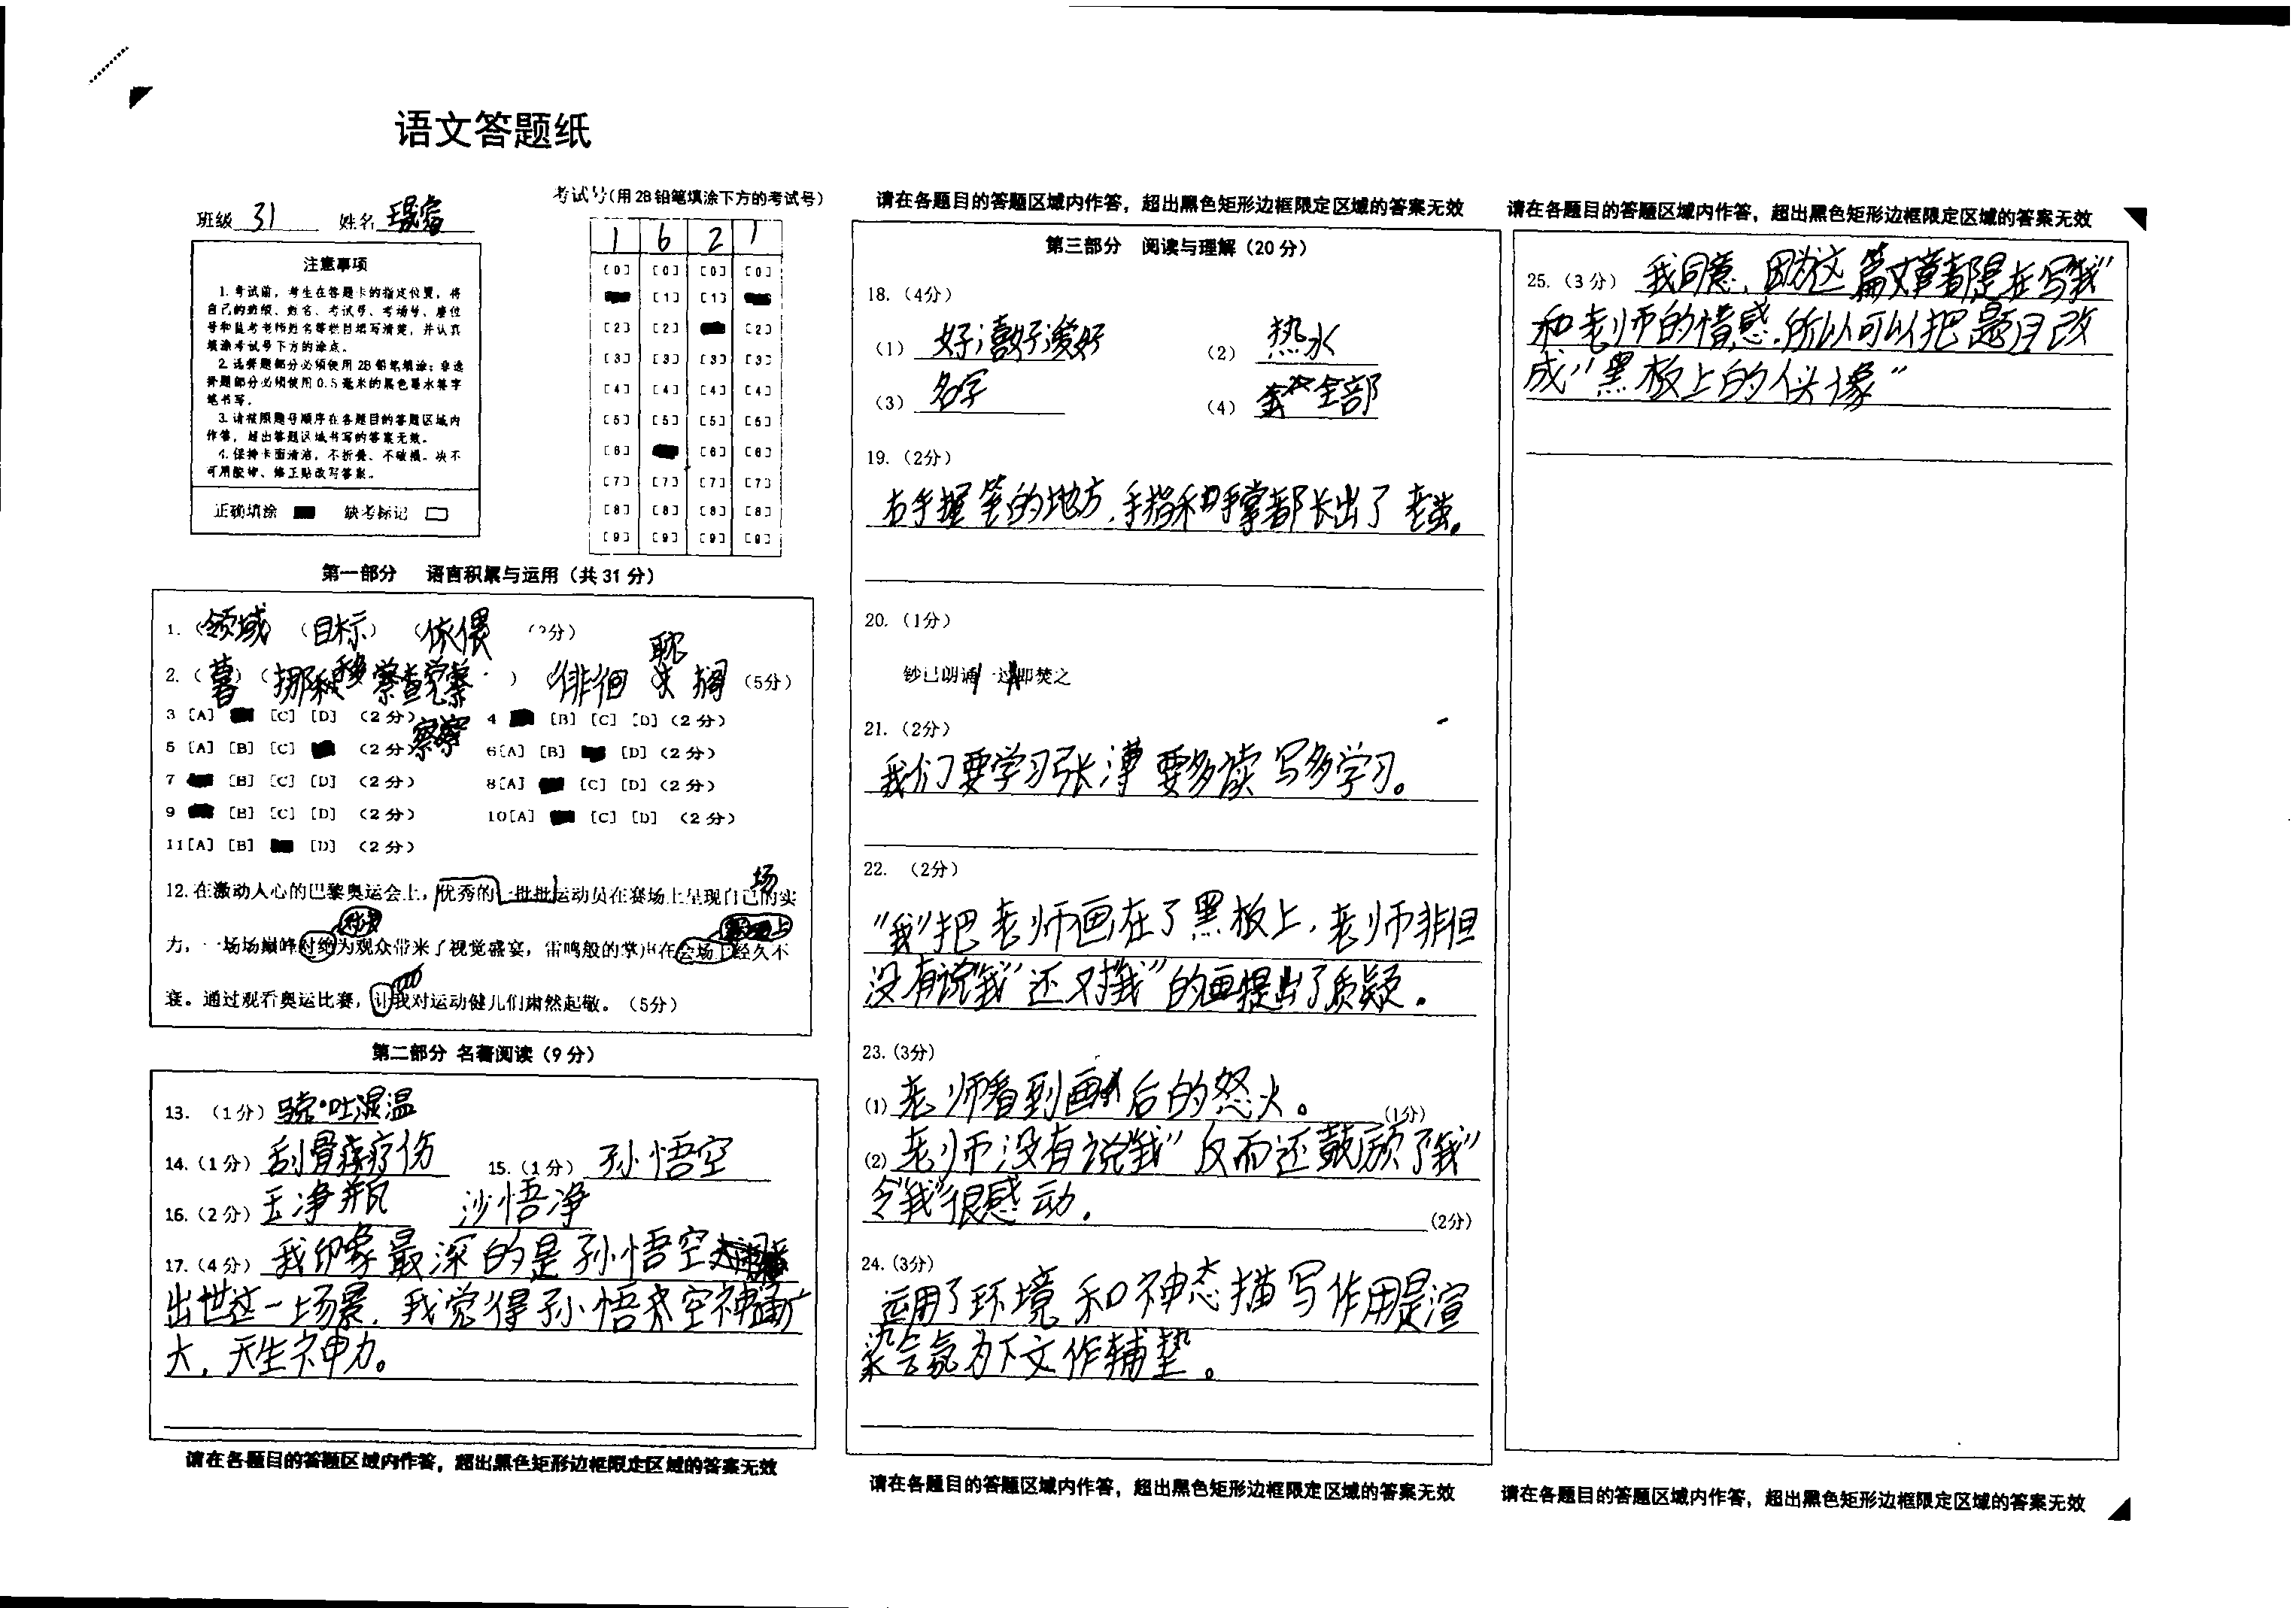 语文答题纸
班级 31 姓名
考试号(用2B铅笔填涂下方的考试号)
1 6 2 1
[0] [0] [0] [0]
[1] [1]
[2] [2] [2]
[3] [3] [3] [3]
[4] [4] [4] [4]
[5] [5] [5] [5]
[6] [6] [6]
[7] [7] [7] [7]
[8] [8] [8] [8]
[9] [9] [9] [9]
注意事项
1.考试前,考生在答题卡的指定位置,将
自己的班级、姓名、考试号、考场号、座位
号和监考老师姓名等栏目填写清楚,并认真
填涂考试号下方的涂点。
2.选择题部分必须使用2B铅笔填涂;非选
择题部分必须使用0.5毫米的黑色墨水签字
笔书写。
3.请按照题号顺序在各题目的答题区域内
作答,超出答题区域书写的答案无效。
4.保持卡面清洁,不折叠、不破损。决不
可用胶带、修正贴改写答案。
正确填涂 缺考标记
第一部分 语言积累与运用(共31分)
1.(领域)(目标)(依偎
2.(暮)(挪移 察觉)(徘徊 耽搁 (5分)
3 [A] [C] [D] (2分) 4 [B] [C] [D] (2分)
5 [A] [B] [C] (2分) 6[A] [B] [D] (2分)
7 [B] [C] [D] (2分) 8[A] [C] [D] (2分)
9 [B] [C] [D] (2分) 10[A] [C] [D] (2分)
11[A] [B] [D] (2分)
12.在激动人心的巴黎奥运会上,优秀的一批批运动员在赛场上呈现自己的实
力,一场场巅峰对绝为观众带来了视觉盛宴,雷鸣般的掌声在会场上经久不
衰。通过观看奥运比赛,让我对运动健儿们肃然起敬。(5分)
第二部分 名著阅读(9分)
13.(1分)骁·吐温
14.(1分)刮骨疗伤 15.(1分)孙悟空
16.(2分)玉净瓶 沙悟净
17.(4分)我印象最深的是孙悟空
出世这一场景,我觉得孙悟空神通广
大,天生神力。
请在各题目的答题区域内作答,超出黑色矩形边框限定区域的答案无效
请在各题目的答题区域内作答,超出黑色矩形边框限定区域的答案无效
第三部分 阅读与理解(20分)
18.(4分)
(1) 好;喜好;爱好 (2) 热水
(3) 名字 (4) 全部
19.(2分)
右手握笔的地方,手指和手掌都长出了老茧。
20.(1分)
钞已朗诵 一过即焚之
21.(2分)
我们要学习张溥 要多读 写多学习。
22.(2分)
“我”把老师画在了黑板上,老师非但
没有说“我”还对“我”的画提出了质疑.
23.(3分)
(1) 老师看到画后的怒火。 (1分)
(2) 老师没有说“我”反而还鼓励了“我”
令“我”很感动. (2分)
24.(3分)
运用了环境和神态描写作用是渲
染气氛为下文作辅垫。
请在各题目的答题区域内作答,超出黑色矩形边框限定区域的答案无效
请在各题目的答题区域内作答,超出黑色矩形边框限定区域的答案无效
25.(3分)我同意,因为这篇文章都是在写“我”
和老师的情感.所以可以把题目改
成“黑板上的人头像”
请在各题目的答题区域内作答,超出黑色矩形边框限定区域的答案无效